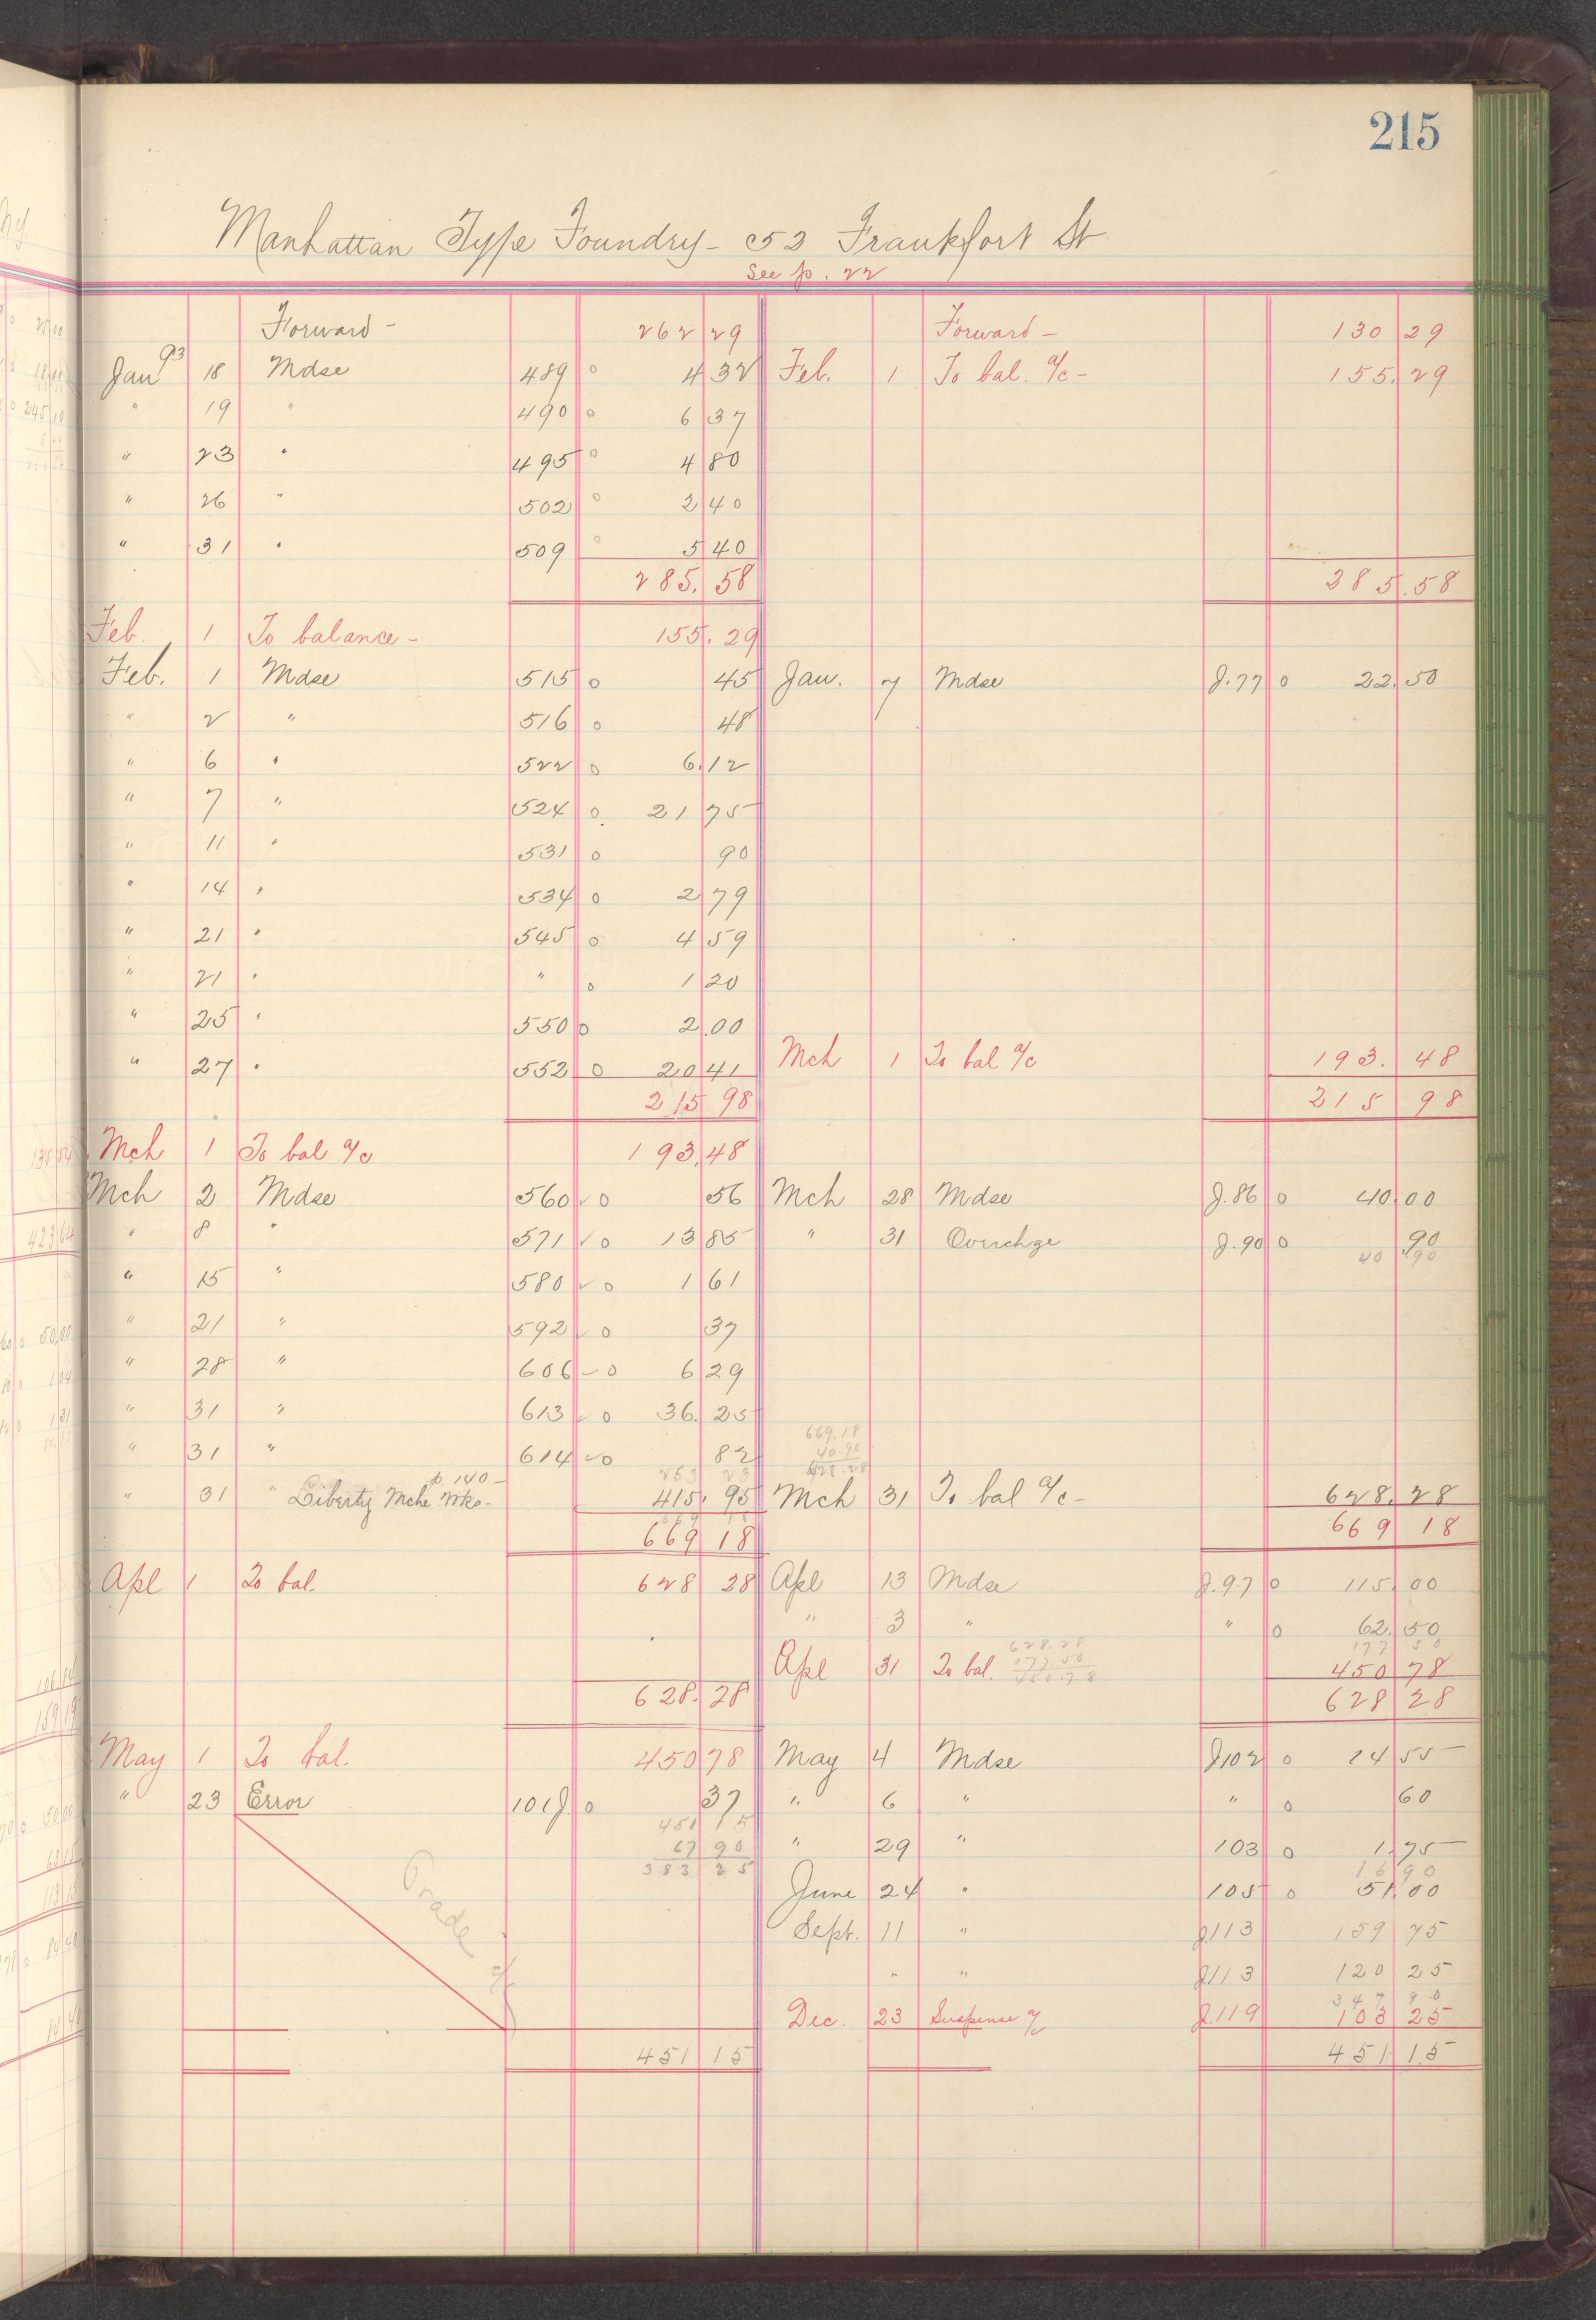 215
Manhattan Type Foundry - 52 Frankfort St.
See p. 22
Forward - 262 29 Forward - 130 29
Jan 93 18 Mdse 489 o 4 32 Feb. 1 To bal. a/c - 155.29
" 19 " 490 o 6 37
" 23 " 495 o 4 80
" 26 " 502 o 2 40
" 31 " 509 o 5 40
285.58 285.58
Feb. 1 To balance - 155.29
Feb. 1 Mdse 515 o 45 Jan. 7 Mdse J.77 o 22.50
" 2 " 516 o 48
" 6 " 522 o 6.12
" 7 " 524 o 21 75
" 11 " 531 o 90
" 14 " 534 o 2 79
" 21 " 545 o 4 59
" 21 " " o 1 20
" 25 " 550 o 2.00
" 27 " 552 o 20 41 Mch 1 To bal a/c 193.48
215 98 215 98
Mch 1 To bal a/c 193.48
Mch 2 Mdse 560 ✓ o 56 Mch 28 Mdse J.86 o 40.00
" 8 " 571 ✓ o 13 85 " 31 Overchge J.90 o .90
40 90
" 15 " 580 ✓ o 1 61
" 21 " 592 ✓ o 37
" 28 " 606 ✓ o 6 29
" 31 " 613 ✓ o 36.25
669.18
" 31 " 614 ✓ o 82 40 90
253 23 628.28
p. 140 -
" 31 " Liberty Mche Wks - 415.95 Mch 31 To bal a/c - 628.28
669 18
669 18 669 18
Apl 1 To bal. 628 28 Apl 13 Mdse J.97 o 115.00
" 3 " " o 62.50
628.28 177 50
Apl 31 To bal. 177.50 450 78
450.78
628.28 628 28
May 1 To bal. 450 78 May 4 Mdse J102 o 14 55
" 23 Error 101 J o 37 " 6 " " o 60
451 15
67.90 " 29 " 103 o 1.75
383 25 16 90
June 24 " 105 o 51.00
Sept. 11 " J113 159 75
" " J113 120 25
347 90
Dec. 23 Suspense a/c J.119 103 25
451 15 451.15